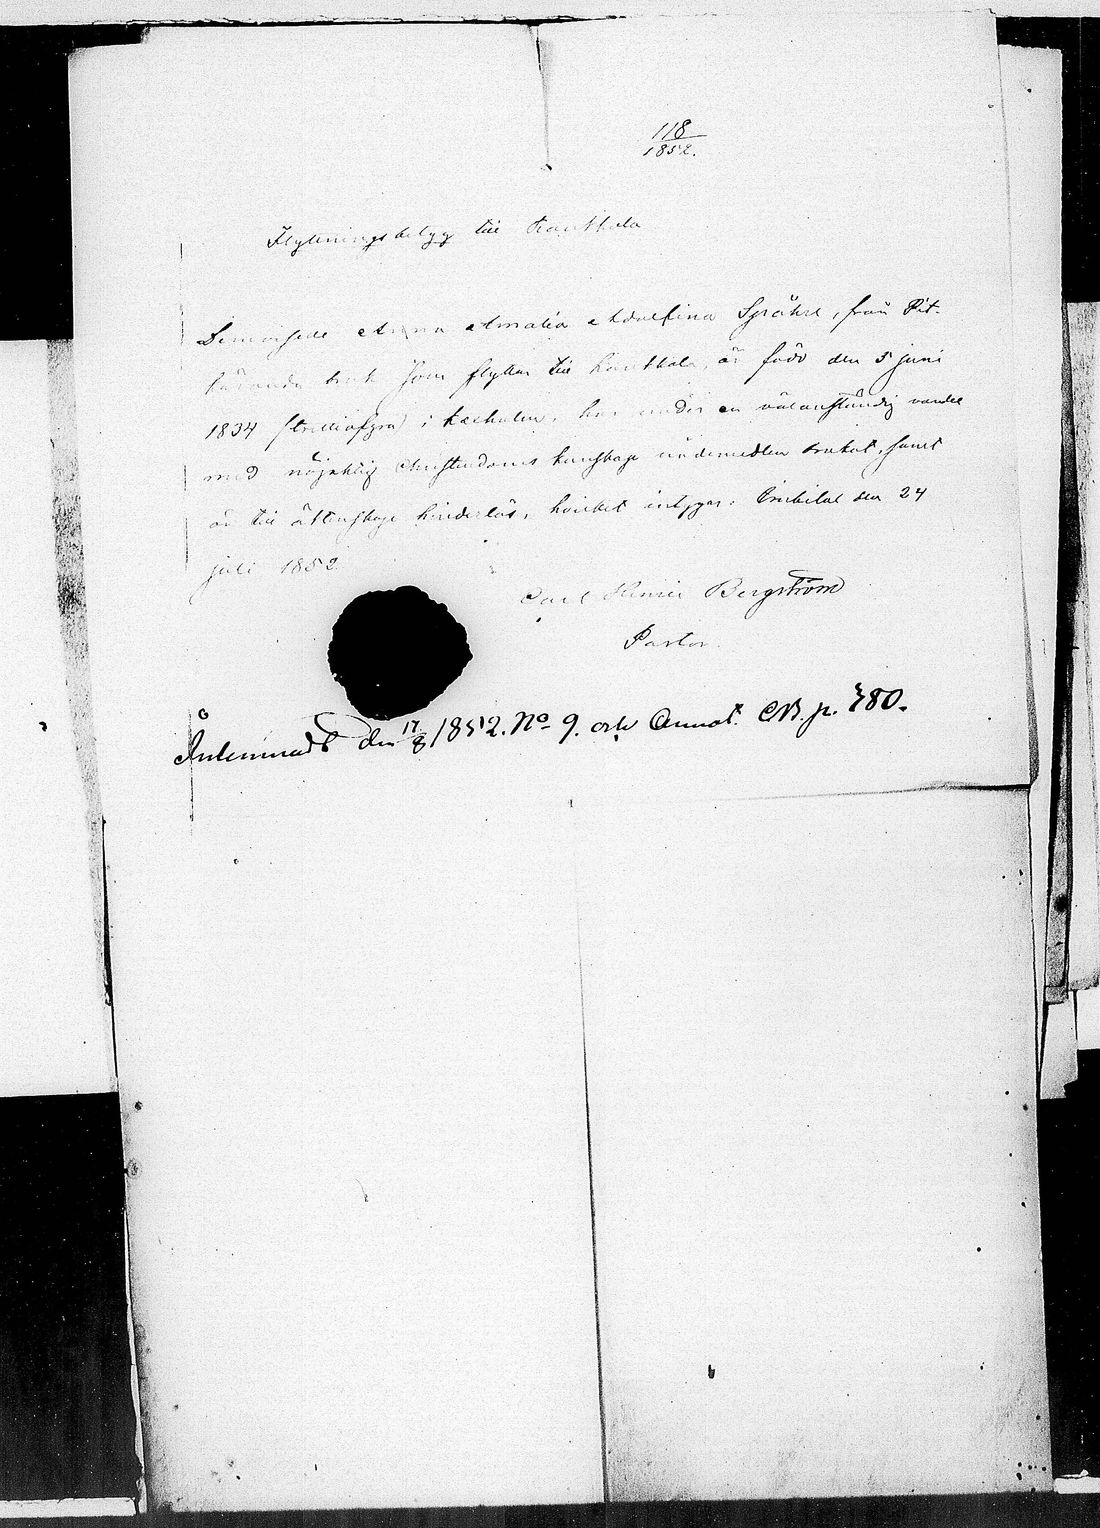 118
1852.
Flyttningsbetyg till Kantkala
Demoisele Anna Amalia Adolfina Språhre, från Pit-
käranda bruk som flyttar till Kantkala, är född den 5 juni
1834 i Kexholm, har under en välanständig vandel
med nöjaktig Christendoms kunskap, samt
är till äktenskap hinderlös, hvilket intygar: Imbilax den 24
juli 1852
Carl Henric Bergström
Pastor.
Inlemnadt den 17/8 1852. No 9. och Annot. CB. p. 780.